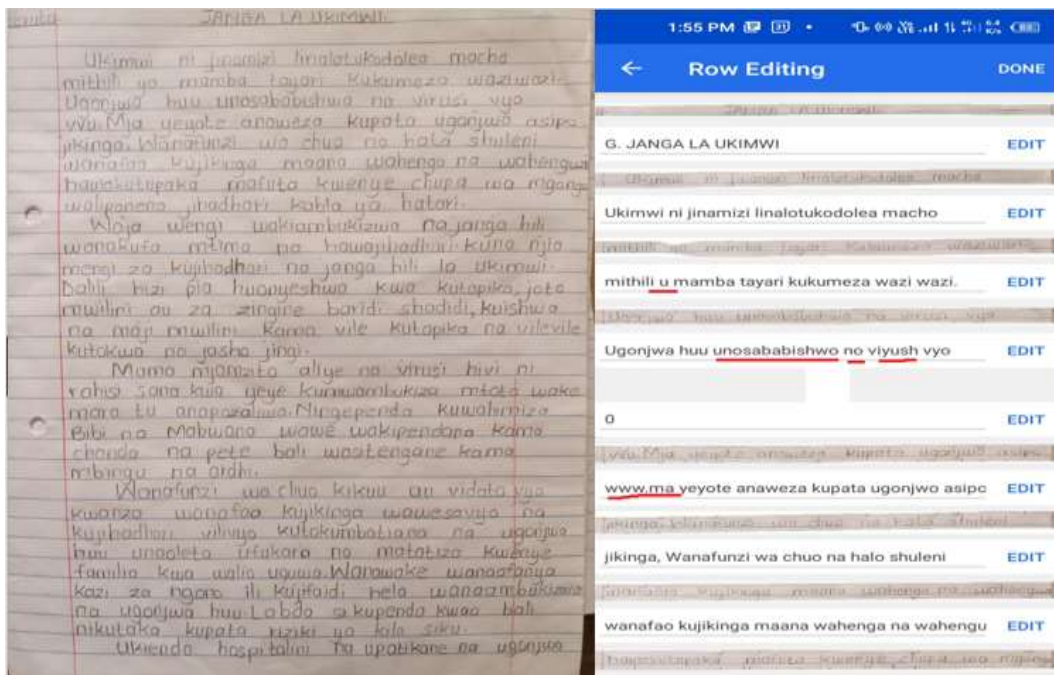 JANGA LA UKIMWI
Ukimwi ni jinamizi linalotukodolea macho
mithili ya mamba tayari kukumeza waziwazi.
Ugonjwa huu unosababishwa na virusi vya
vvu. Mja yeyote anaweza kupata ugonjwa asipo
jikinga. Wanafunzi wa chuo na hata shuleni
wanafaa kujikinga maana wahenga na wahengu
hawakutupaka mafuta kwenye chupa wa mgongo
waliponena jihadhari kabla ya hatari.
Waja wengi wakiambukizwa na janga hili
wanakufa mtima na hawajihadhari. Kuna njia
mengi za kujihadhari na janga hili la ukimwi.
Dalili hizi pia huonyeshwa kwa kutapika, joto
mwilini au za zingine baridi shadidi, kuishiwa
na maji mwilini kama vile kutapika na vilevile
kutokwa na jasho jingi.
Mama mjamzito aliye na virusi hivi ni
rahisi sana kwa yeye kumwambukiza mtoto wake
mara tu anapozaliwa. Ningependa kuwahimiza
Bibi na Mabwana wawe wakipendana kama
chanda na pete bali wasitengane kama
mbingu na ardhi.
Wanafunzi wa chuo kikuu au vidato vya
kwanza wanafaa kujikinga wawesavyo na
kujihadhari vilivyo kutokumbatiana na ugonjwa
huu unaoleta ufukara na matatizo kwenye
familia kwa walio ugua. Wanawake wanaofanya
kazi za ngono ili kujifaidi hela wanaambukizwa
na ugonjwa huu. Labda si kupenda kwao bali
nikutaka kupata riziki ya kila siku.
Ukienda hospitalini na upatikane na ugonjwa
1:55 PM
Row Editing DONE
JANGA LA UKIMWI
G. JANGA LA UKIMWI EDIT
Ukimwi ni jinamizi linalotukodolea macho
Ukimwi ni jinamizi linalotukodolea macho EDIT
mithili ya mamba tayari kukumeza waziwazi
mithili u mamba tayari kukumeza wazi wazi. EDIT
Ugonjwa huu unosababishwa na virusi vya
Ugonjwa huu unosababishwo no viyush vyo EDIT
0 EDIT
vvu. Mja yeyote anaweza kupata ugonjwa asipo
www.ma yeyote anaweza kupata ugonjwo asipc EDIT
jikinga. Wanafunzi wa chuo na hata shuleni
jikinga, Wanafunzi wa chuo na halo shuleni EDIT
wanafaa kujikinga maana wahenga na wahengu
wanafao kujikinga maana wahenga na wahengu EDIT
hawakutupaka mafuta kwenye chupa wa mgongo